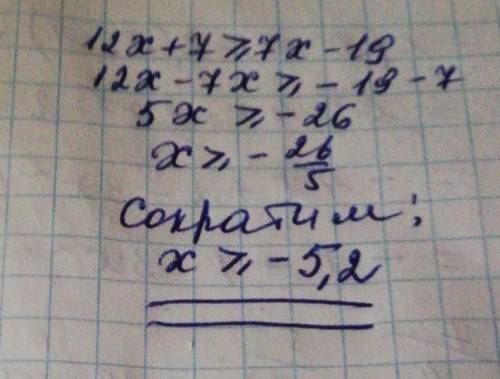 12x+7⩾7x-19
12x-7x⩾-19-7
5x⩾-26
x⩾-26/5
Сократим:
x⩾-5,2